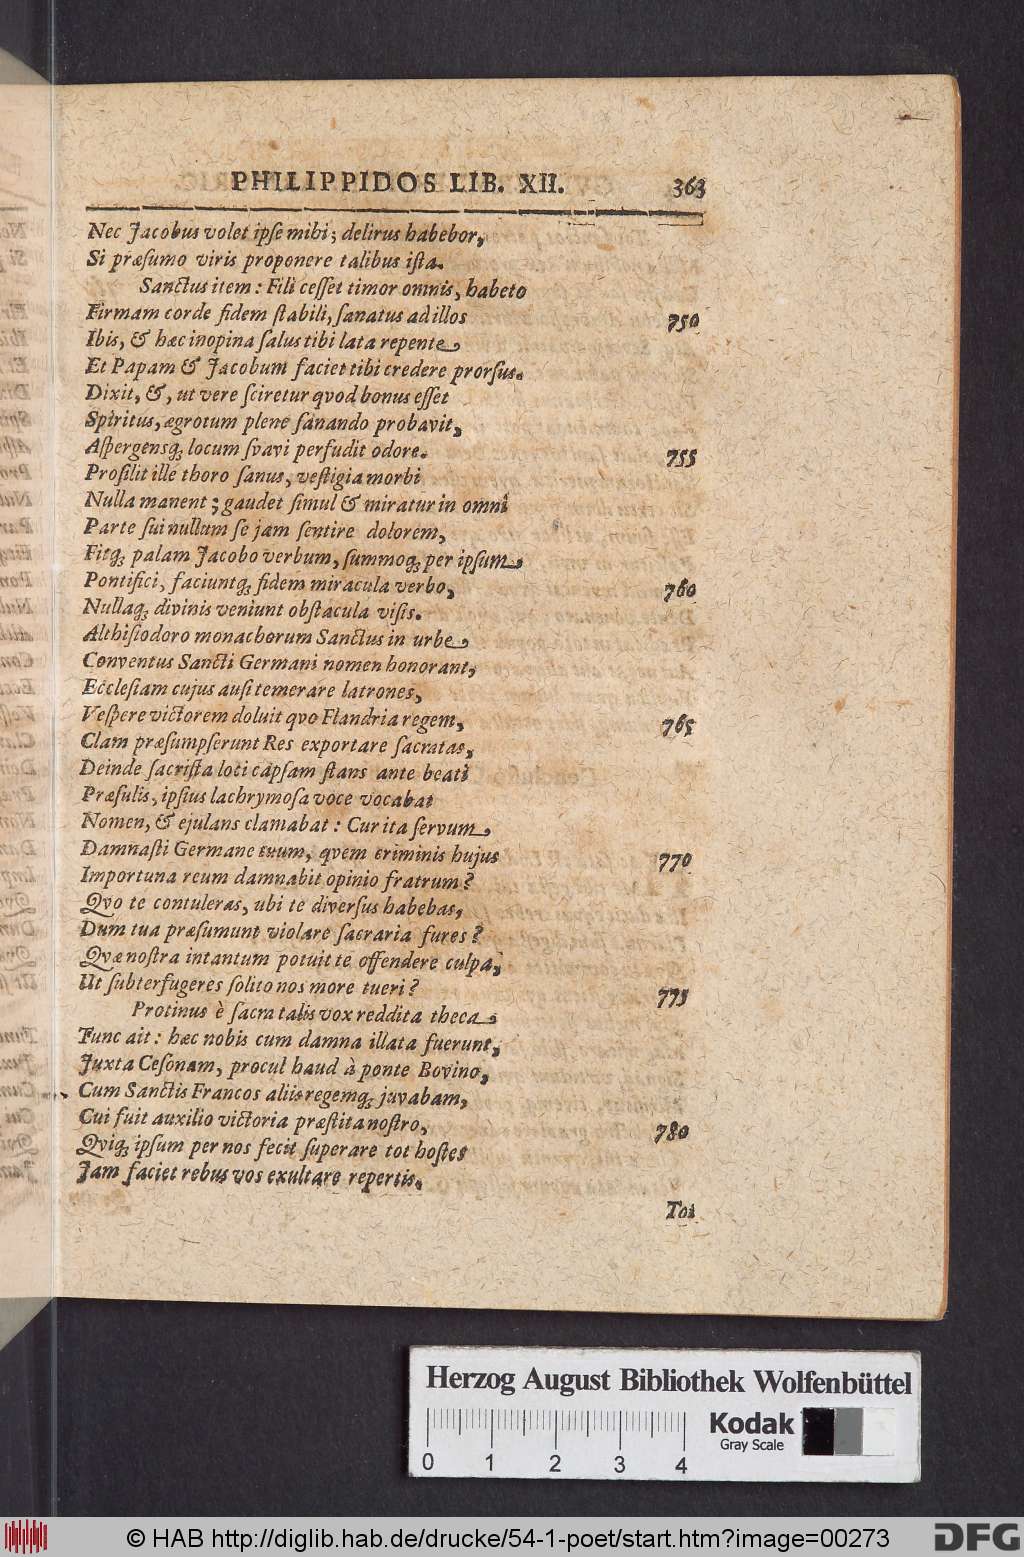 PHILIPPIDOS LIB. XII. 363
Nec Jacobus volet ipſe mihi; delirus habebor,
Si præſumo viris proponere talibus iſta.
Sanctus item: Fili ceſſet timor omnis, habeto
Firmam corde fidem ſtabili, ſanatus ad illos 750
Ibis, & hæc inopina ſalus tibi lata repente
Et Papam & Jacobum faciet tibi credere prorſus.
Dixit, &, ut vere ſciretur qvod bonus eſſet
Spiritus, ægrotum plene ſanando probavit,
Aſpergensq; locum ſvavi perfudit odore. 755
Proſilit ille thoro ſanus, veſtigia morbi
Nulla manent; gaudet ſimul & miratur in omni
Parte ſui nullum ſe jam ſentire dolorem,
Fitq; palam Jacobo verbum, ſummoq; per ipſum
Pontifici, faciuntq; fidem miracula verbo, 760
Nullaq; divinis veniunt obſtacula viſis.
Althiſiodoro monachorum Sanctus in urbe
Conventus Sancti Germani nomen honorant,
Eccleſiam cujus auſi temerare latrones,
Veſpere victorem doluit qvo Flandria regem, 765
Clam præſumpſerunt Res exportare ſacratas,
Deinde ſacriſta loci capſam ſtans ante beati
Præſulis, ipſius lachrymoſa voce vocabat
Nomen, & ejulans clamabat: Cur ita ſervum
Damnaſti Germane tuum, qvem criminis hujus 770
Importuna reum damnabit opinio fratrum?
Qvo te contuleras, ubi te diverſus habebas,
Dum tua præſumunt violare ſacraria fures?
Qvæ noſtra intantum potuit te offendere culpa,
Ut ſubterfugeres ſolito nos more tueri? 775
Protinus è ſacra talis vox reddita theca
Tunc ait: hæc nobis cum damna illata fuerunt,
Juxta Ceſonam, procul haud à ponte Bovino,
Cum Sanctis Francos aliis regemq; juvabam,
Cui fuit auxilio victoria præſtita noſtro, 780
Qviq; ipſum per nos fecit ſuperare tot hoſtes
Jam faciet rebus vos exultare repertis.
Tot
Herzog August Bibliothek Wolfenbüttel
Kodak
Gray Scale
0 1 2 3 4
© HAB http://diglib.hab.de/drucke/54-1-poet/start.htm?image=00273
DFG